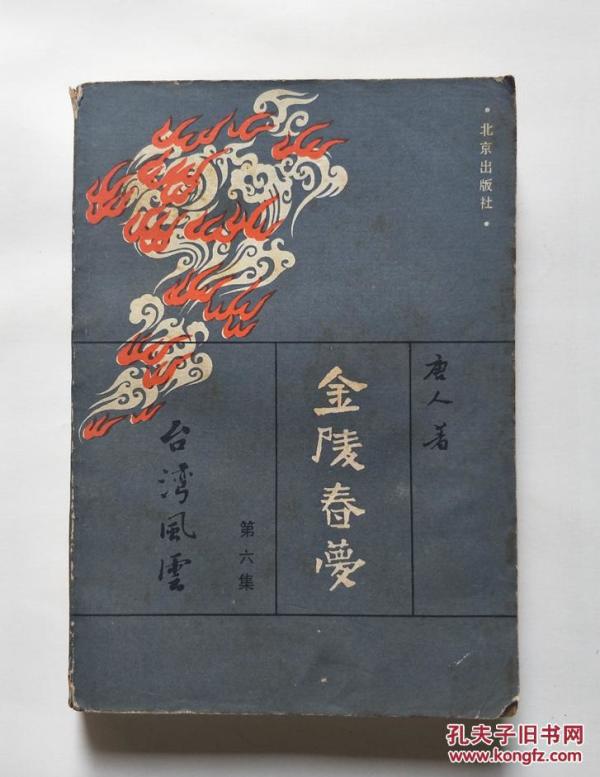 ·北京出版社·
唐人著
金陵春夢
第六集
台湾風雲
孔夫子旧书网
www.kongfz.com